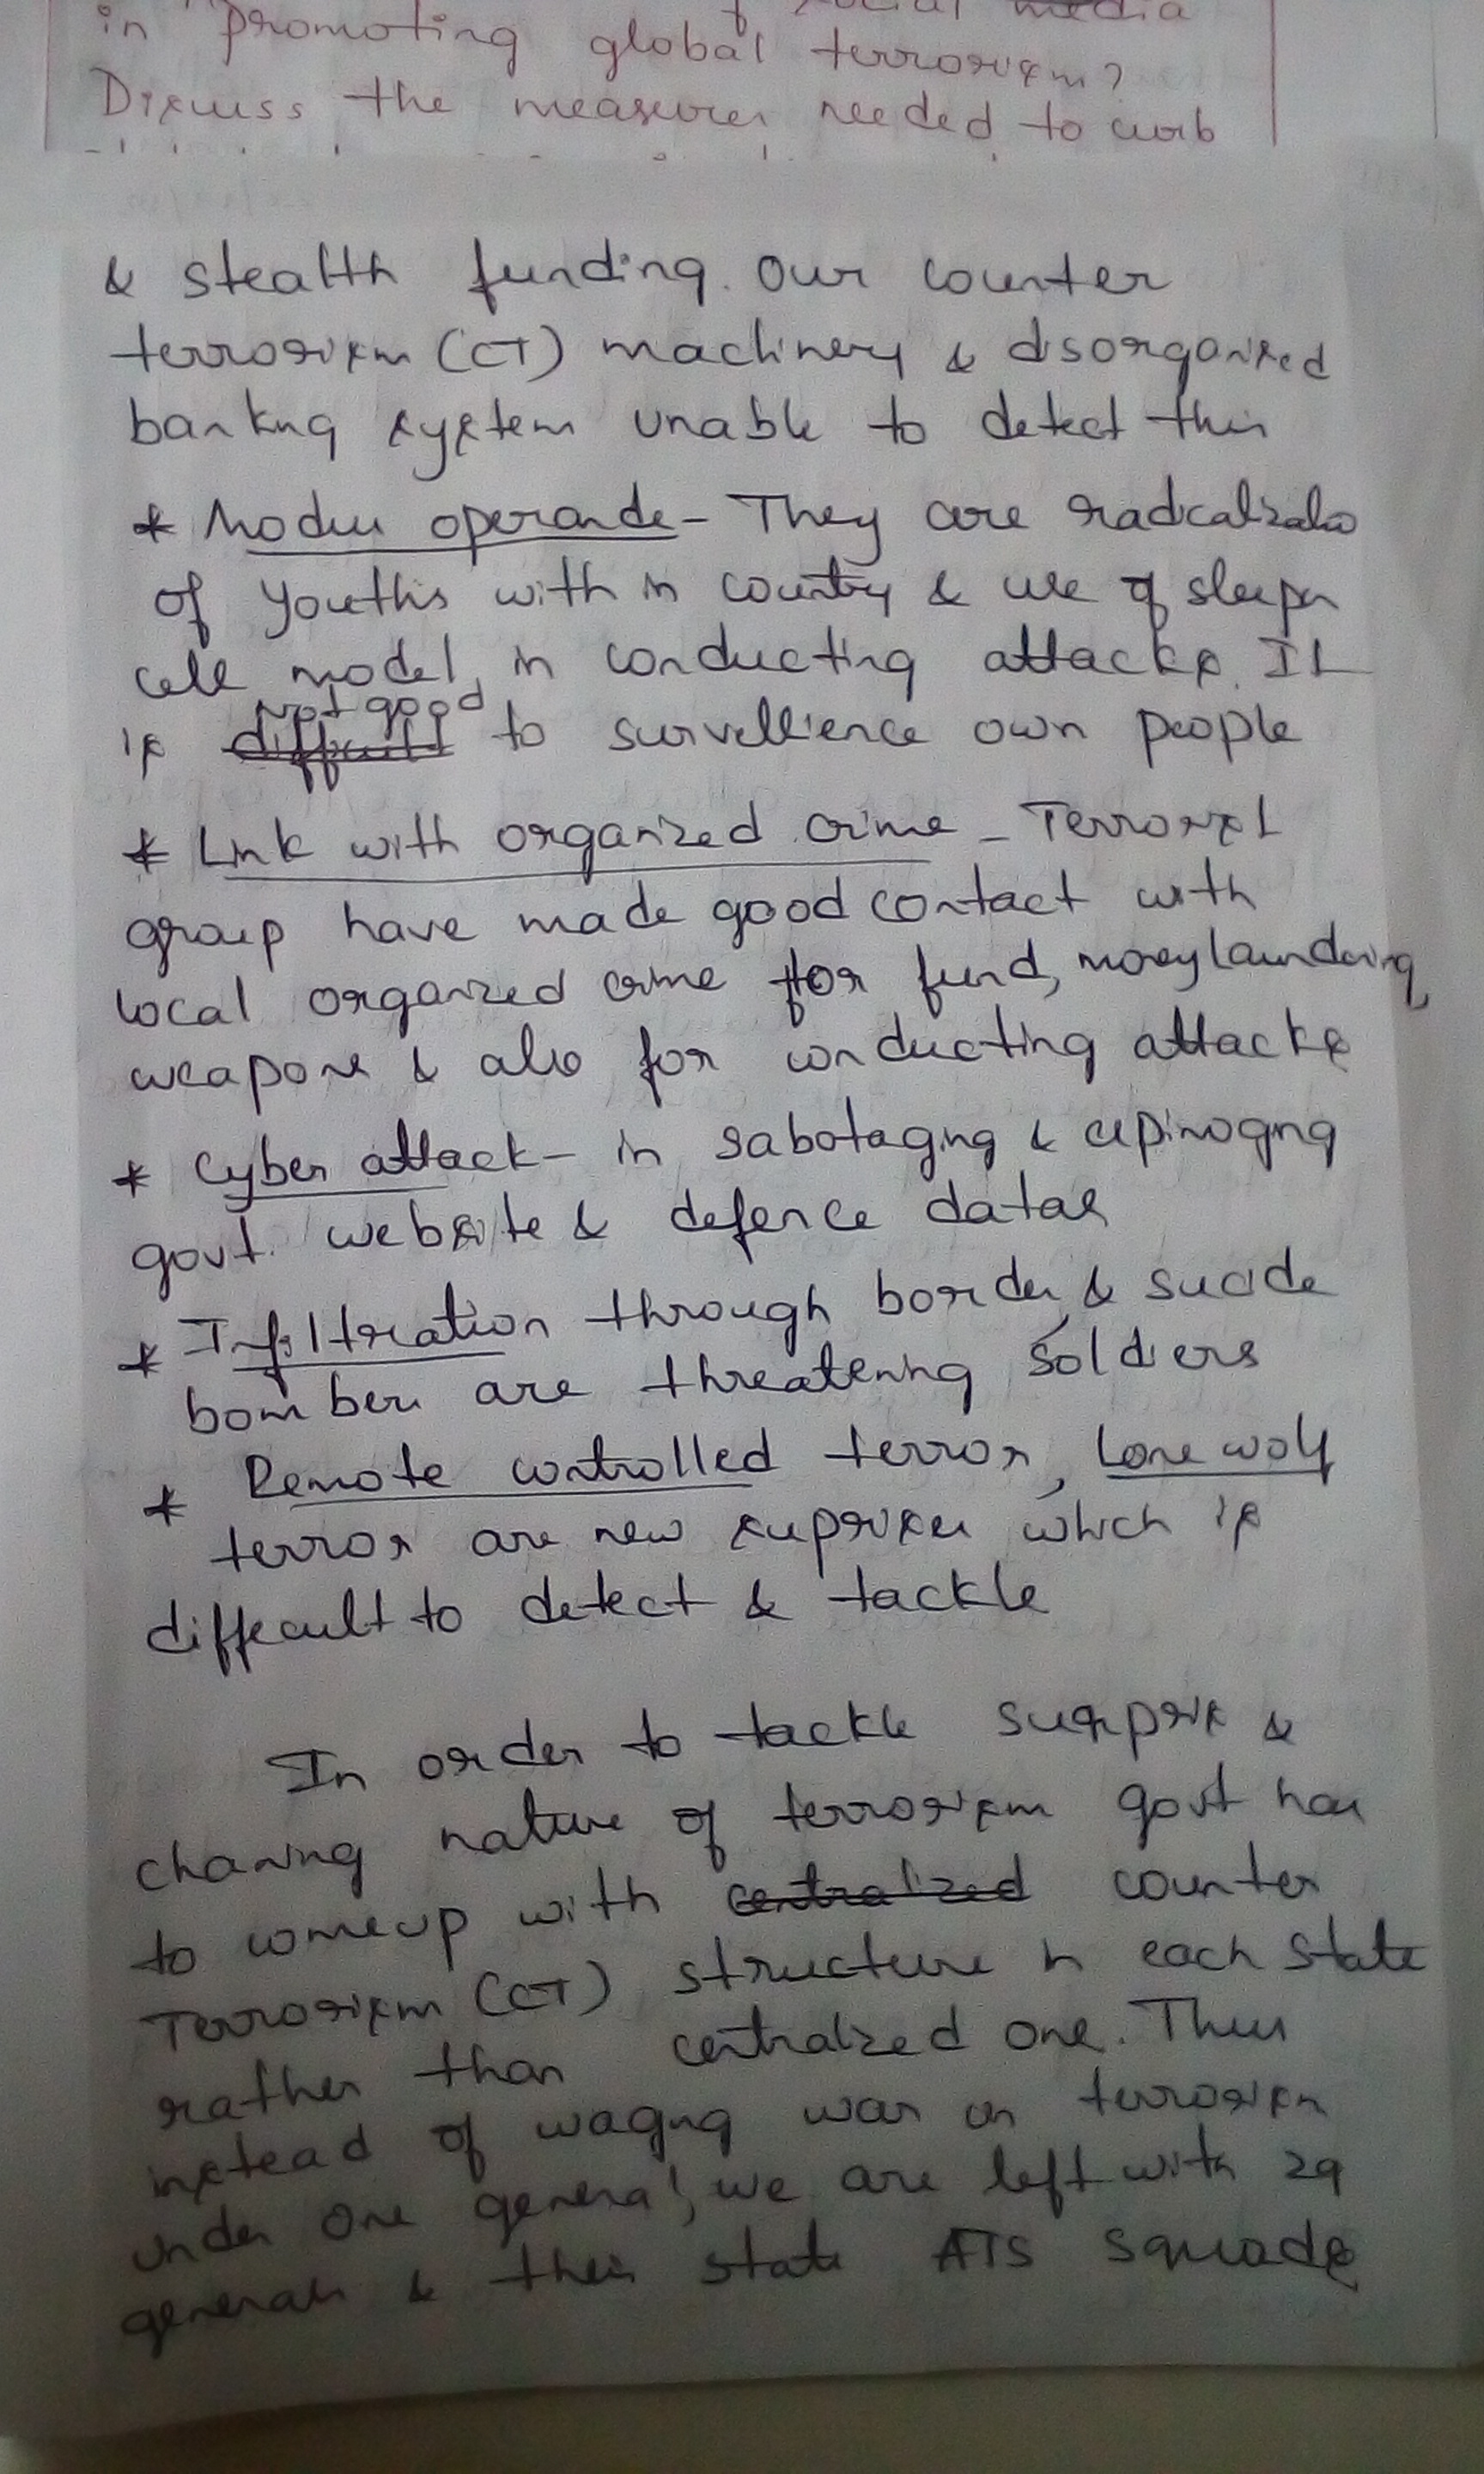 social media
in promoting global terrorism?
Discuss the measures needed to curb
& stealth funding. Our counter
terrorism (CT) machinery & disorganised
banking system unable to detect this
* Modus operande - They are radicalizatio
of youths with in country & use of sleeper
cell model in conducting attacks. It
not good
is difficult to survellience own people
* Link with organized crime - Terrorist
group have made good contact with
local organized crime for fund, money laundering,
weapons & also for conducting attacks
* Cyber attack - in sabotaging &
govt. website & defence datas
* Infiltration through border & sucide
bombers are threatening soldiers
* Remote controlled terror, Lone wolf
terror are new suprises which is
difficult to detect & tackle
In order to tackle surpris &
chaning nature of terrorism govt has
to comeup with centralized counter
Terrorism (CT) structure in each state
rather than centralized one. Thus
instead of waging war on terrorism
under one general, we are left with 29
generals & their state ATS squads